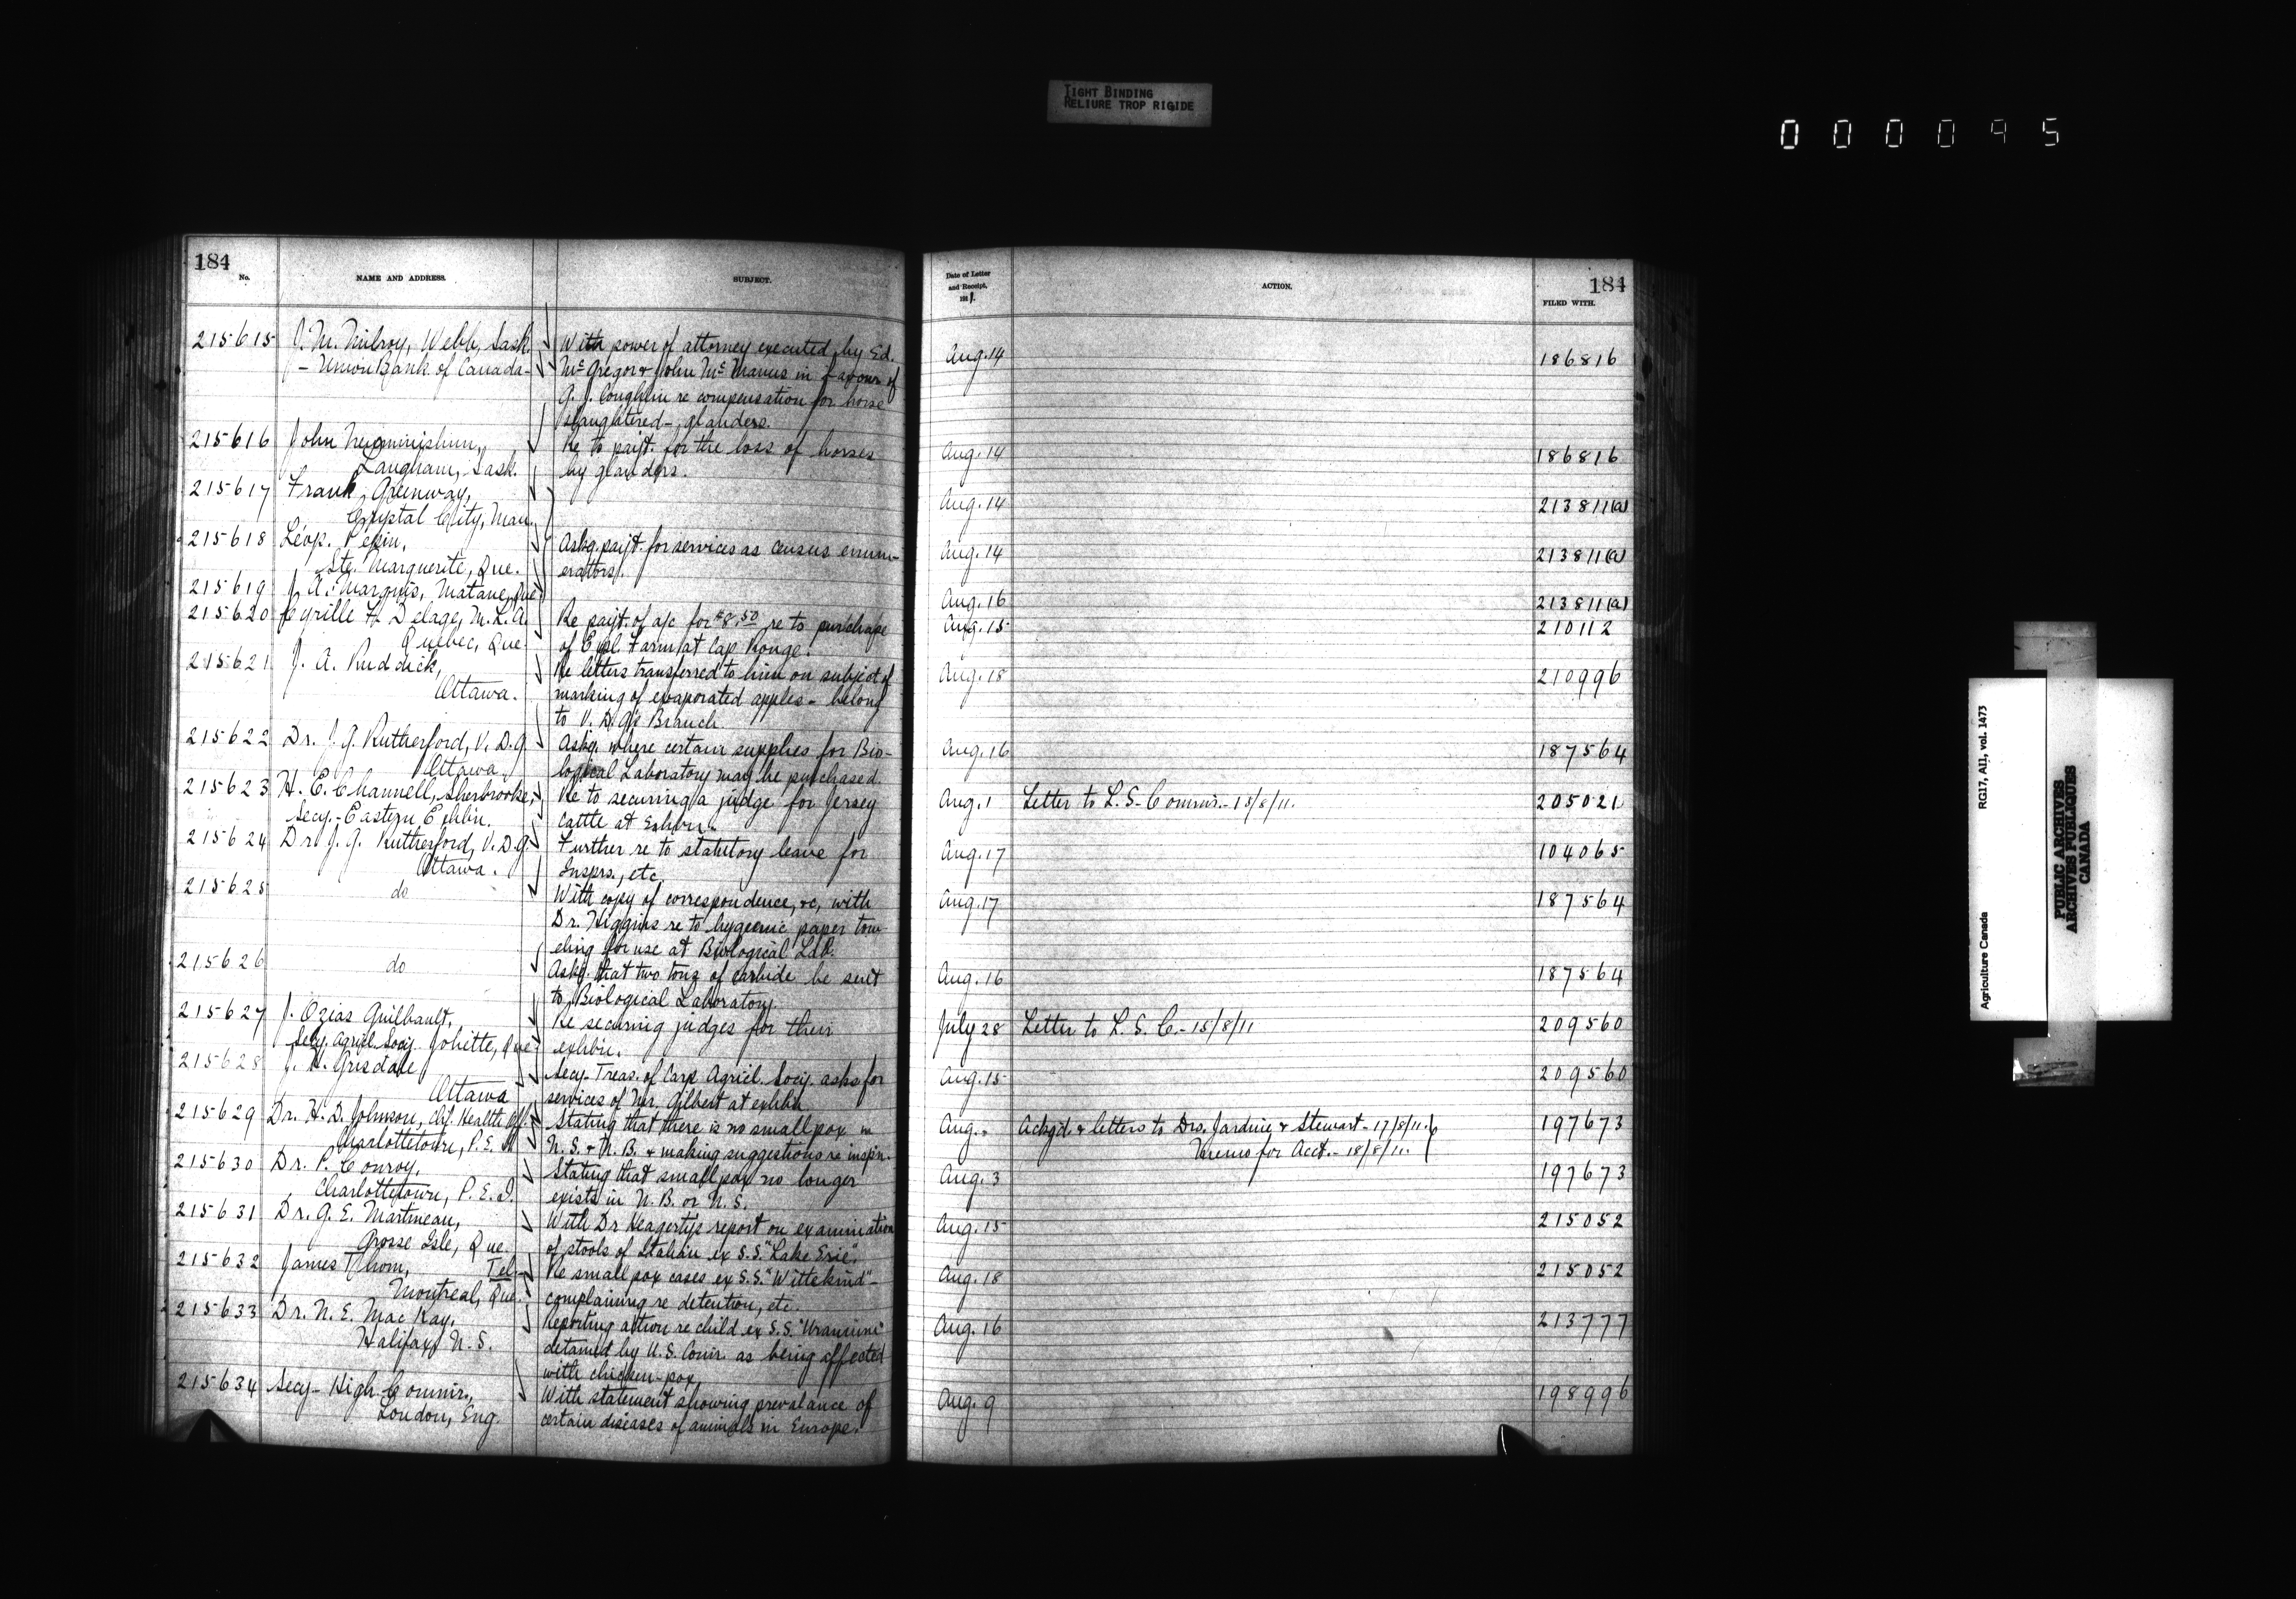 TIGHT BINDING
RELIURE TROP RIGIDE
000095
184
No.
NAME AND ADDRESS.
SUBJECT.
215615 J. M. Milroy, Webb, Sask. With power of attorney executed by Ed.
- Union Bank of Canada - McGregor & John McManus in favour of
A. J. Coughlin re compensation for horse
slaughtered - glanders.
215616 John Re to paist. for the loss of horses
Langham, Sask. by glanders.
215617 Frank Greenway,
Crystal City, Man.
215618 Léop. Pekin, Askg. payt. for services as census enum-
Ste. Marguerite, Que. erators.
215619 J. A. Marquis, Matane, Que.
215620 Cyrille F. Delage, M.L.A. Re payt. of a/c for $8.50 re to purchase
Quebec, Que. of Expl. Farm at Cap Rouge.
215621 J. A. Ruddick, Re letters transferred to him on subject of
Ottawa. marking of evaporated apples - belong
to V. D. G's Branch
215622 Dr. J. G. Rutherford, V. D. G. Askg. where certain supplies for Bio-
Ottawa. logical Laboratory may be purchased.
215623 H. E. Channell, Sherbrooke, Re to securing a judge for Jersey
Secy. - Eastern Exhbn. cattle at Exhbn.
215624 Dr. J. G. Rutherford, V. D. G. Further re to statutory leave for
Ottawa. Insprs., etc.
215625 do With copy of correspondence, &c, with
Dr. Higgins re to hygenic paper tow-
eling for use at Biological Lab.
215626 do Askg. that two tons of carbide be sent
to Biological Laboratory.
215627 J. Ozias Guilbault, Re securing judges for their
Secy. Agricl. Socy. Joliette, Que. exhbn.
215628 J. H. Grisdale Secy-Treas. of Carp Agricl. Socy. asks for
Ottawa services of Mr. Gilbert at exhbn
215629 Dr. H. D. Johnson, Chf. Health Off. Stating that there is no smallpox in
Charlottetown, P. E. I. N. S. & N. B. & making suggestions re inspn.
215630 Dr. P. Conroy, Stating that smallpox no longer
Charlottetown, P. E. I. exists in N. B. or N. S.
215631 Dr. G. E. Martineau, With Dr Heagerty's report on examination
Grosse Isle, Que. of stools of Italian ex S.S. "Lake Erie".
215632 James Thom, Tel. Re small pox cases ex S.S. "Wittekind" -
Montreal, Que. complaining re detention, etc.
215633 Dr. N. E. MacKay, Reporting action re child ex S.S. "Uranium"
Halifax, N. S. detained by U. S. Comr. as being affected
with chicken-pox.
215634 Secy - High Commr., With statement showing prevalance of
London, Eng. certain diseases of animals in Europe.
Date of Letter
and Receipt,
1911.
ACTION.
184
FILED WITH.
Aug. 14 186816
Aug. 14 186816
Aug. 14 213811(a)
Aug. 14 213811(a)
Aug. 16 213811(a)
Aug. 15 210112
Aug. 18 210996
Aug. 16 187564
Aug. 1 Letter to L. S. Commr. - 15/8/11. 205021
Aug. 17 104065
Aug. 17 187564
Aug. 16 187564
July 28 Letter to L. S. C. - 15/8/11 209560
Aug. 15 209560
Aug. - Ackgd. & letters to Drs. Jardine & Stewart - 17/8/11. 197673
Memo for Acct. - 18/8/11.
Aug. 3 197673
Aug. 15 215052
Aug. 18 215052
Aug. 16 213777
Aug. 9 198996
Agriculture Canada RG17, AII, vol. 1473
PUBLIC ARCHIVES
ARCHIVES PUBLIQUES
CANADA